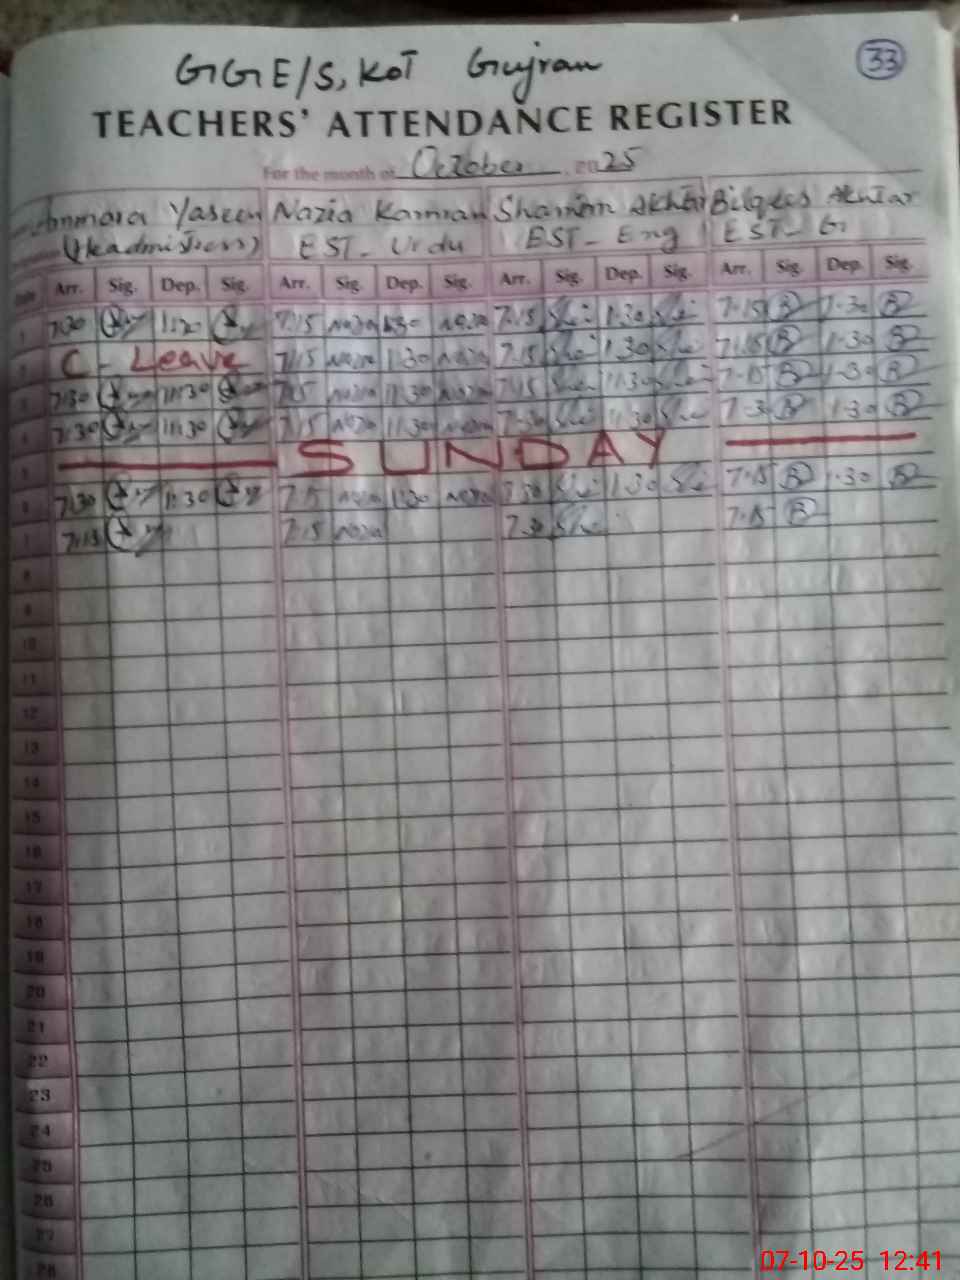 GGE/S, Kot Gujran
33
TEACHERS' ATTENDANCE REGISTER
For the month of October 2025
Ammara Yaseen Nazia Kamran Shamim Akhtar Bilqees Akhtar
(Headmistress) EST- Urdu EST- Eng EST- G
Date Arr. Sig. Dep. Sig. Arr. Sig. Dep. Sig. Arr. Sig. Dep. Sig. Arr. Sig. Dep. Sig.
1 7:30 1:30 7:15 Nazia 1:30 Nazia 7:15 1:30 7:15 B 1:30 B
2 C- Leave 7:15 Nazia 1:30 Nazia 7:15 1:30 7:15 B 1:30 B
3 7:30 11:30 7:15 Nazia 11:30 Nazia 7:15 11:30 7:15 B 1:30 B
4 7:30 11:30 7:15 Nazia 11:30 Nazia 7:30 11:30 7:3 B 1:30 B
5 SUNDAY
6 7:30 1:30 7:15 Nazia 1:30 Nazia 7:30 1:30 7:15 B 1:30 B
7 7:15 7:15 Nazia 7:30 7:15 B
8
9
10
11
12
13
14
15
16
17
18
19
20
21
22
23
24
25
26
27
28
07-10-25 12:41